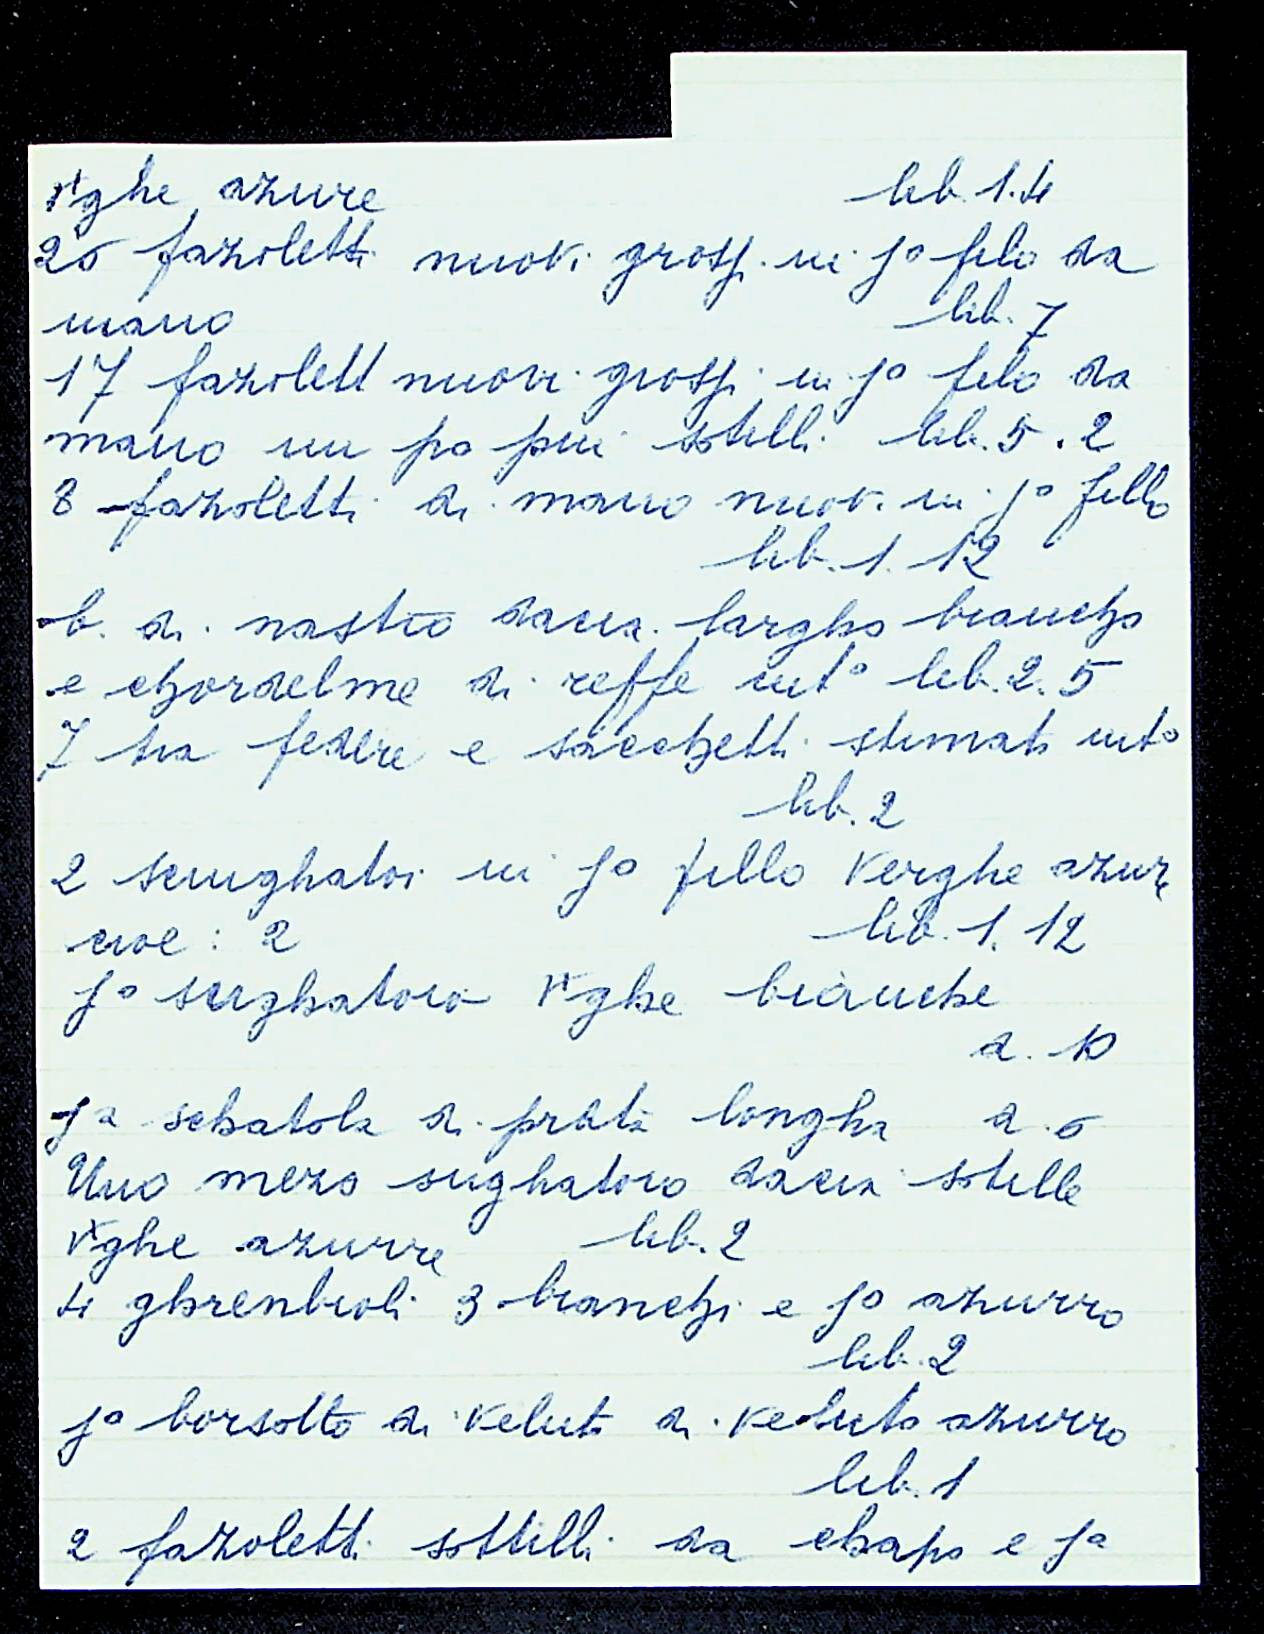 vghe azure lib. 1.4
20 fazoletti nuovi grossi in jº filo da
mano lib. 7
17 fazolett nuovi grossi in jº filo da
mano un po piu sotilli lib. 5.2
8 fazoletti di mano nuovi in jº fillo
lib. 1. 12
lb. di nastro dacia largho biancho
e chordelme di reffe intº lib. 2. 5
7 tra federe e sacchetti stimati intº
lib. 2
2 sciughatoi in jº fillo verghe azur
cioe : 2 lib. 1. 12
jº sciughatoio vghe bianche
d. 10
jª schatola di prita longha d. 0
Uno mezo sughatoio dacia sotille
vghe azurre lib. 2
4 ghrenbioli 3 bianchi e jº azurro
lib. 2
jº borsotto di veluti di veluto azurro
lib. 1
2 fazoletti sottilli da chapo e jª